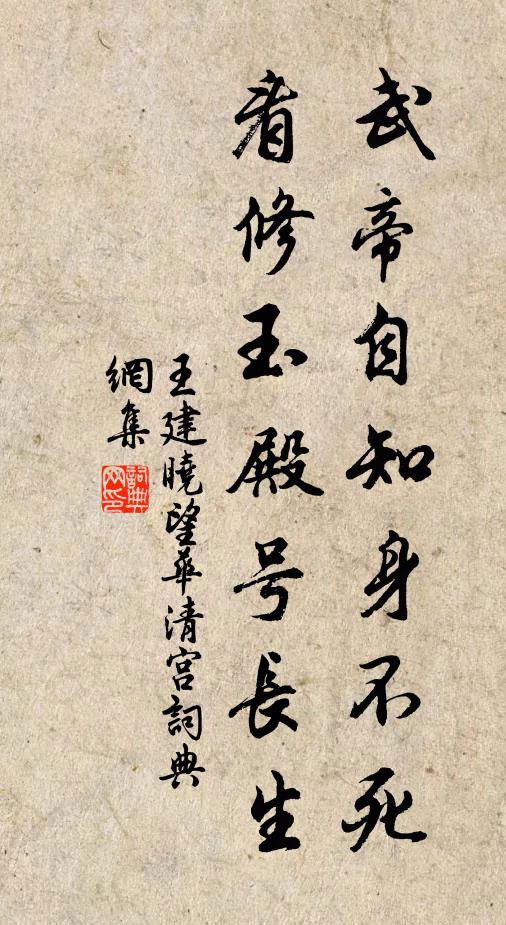 武帝自知身不死
看修玉殿号長生
王建曉望華清宮詞典
網集
詞典
网印